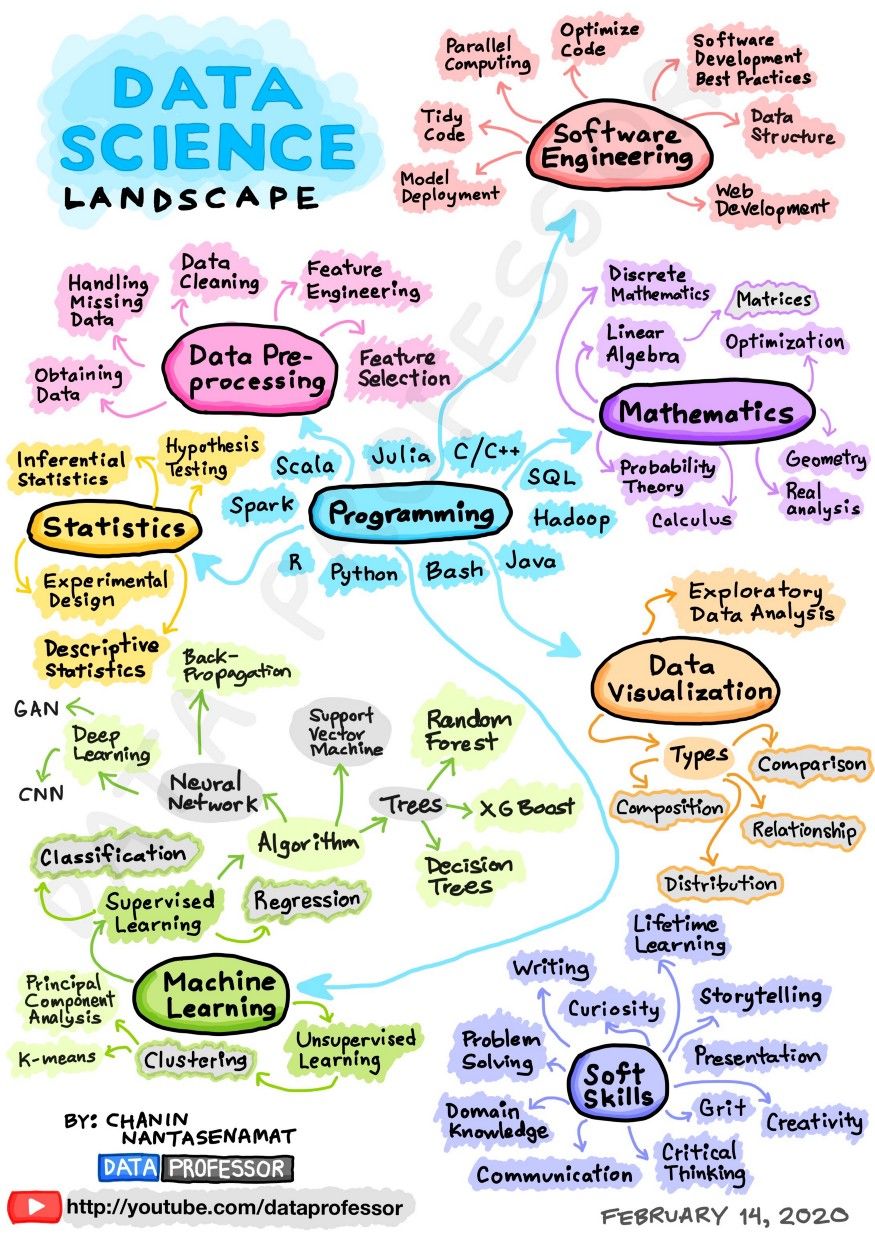 DATA
SCIENCE
LANDSCAPE
Parallel
Computing
Optimize
Code
Software
Development
Best Practices
Tidy
Code
Software
Engineering
Data
Structure
Model
Deployment
Web
Development
Handling
Missing
Data
Data
Cleaning
Feature
Engineering
Data Pre-
processing
Obtaining
Data
Feature
Selection
Discrete
Mathematics
Matrices
Linear
Algebra
Optimization
Mathematics
Probability
Theory
Calculus
Geometry
Real
analysis
Inferential
Statistics
Hypothesis
Testing
Statistics
Experimental
Design
Descriptive
Statistics
Scala
Julia
C/C++
SQL
Spark
Programming
Hadoop
R
Python
Bash
Java
Exploratory
Data Analysis
Data
Visualization
Types
Comparison
Composition
Relationship
Distribution
Back-
Propagation
GAN
Deep
Learning
CNN
Neural
Network
Support
Vector
Machine
Random
Forest
Trees
XG Boost
Algorithm
Decision
Trees
Classification
Supervised
Learning
Regression
Machine
Learning
Principal
Component
Analysis
K-means
Clustering
Unsupervised
Learning
Lifetime
Learning
Writing
Curiosity
Storytelling
Problem
Solving
Soft
Skills
Presentation
Domain
Knowledge
Grit
Creativity
Communication
Critical
Thinking
BY: CHANIN
NANTASENAMAT
DATA PROFESSOR
http://youtube.com/dataprofessor
FEBRUARY 14, 2020
DATA PROFESSOR